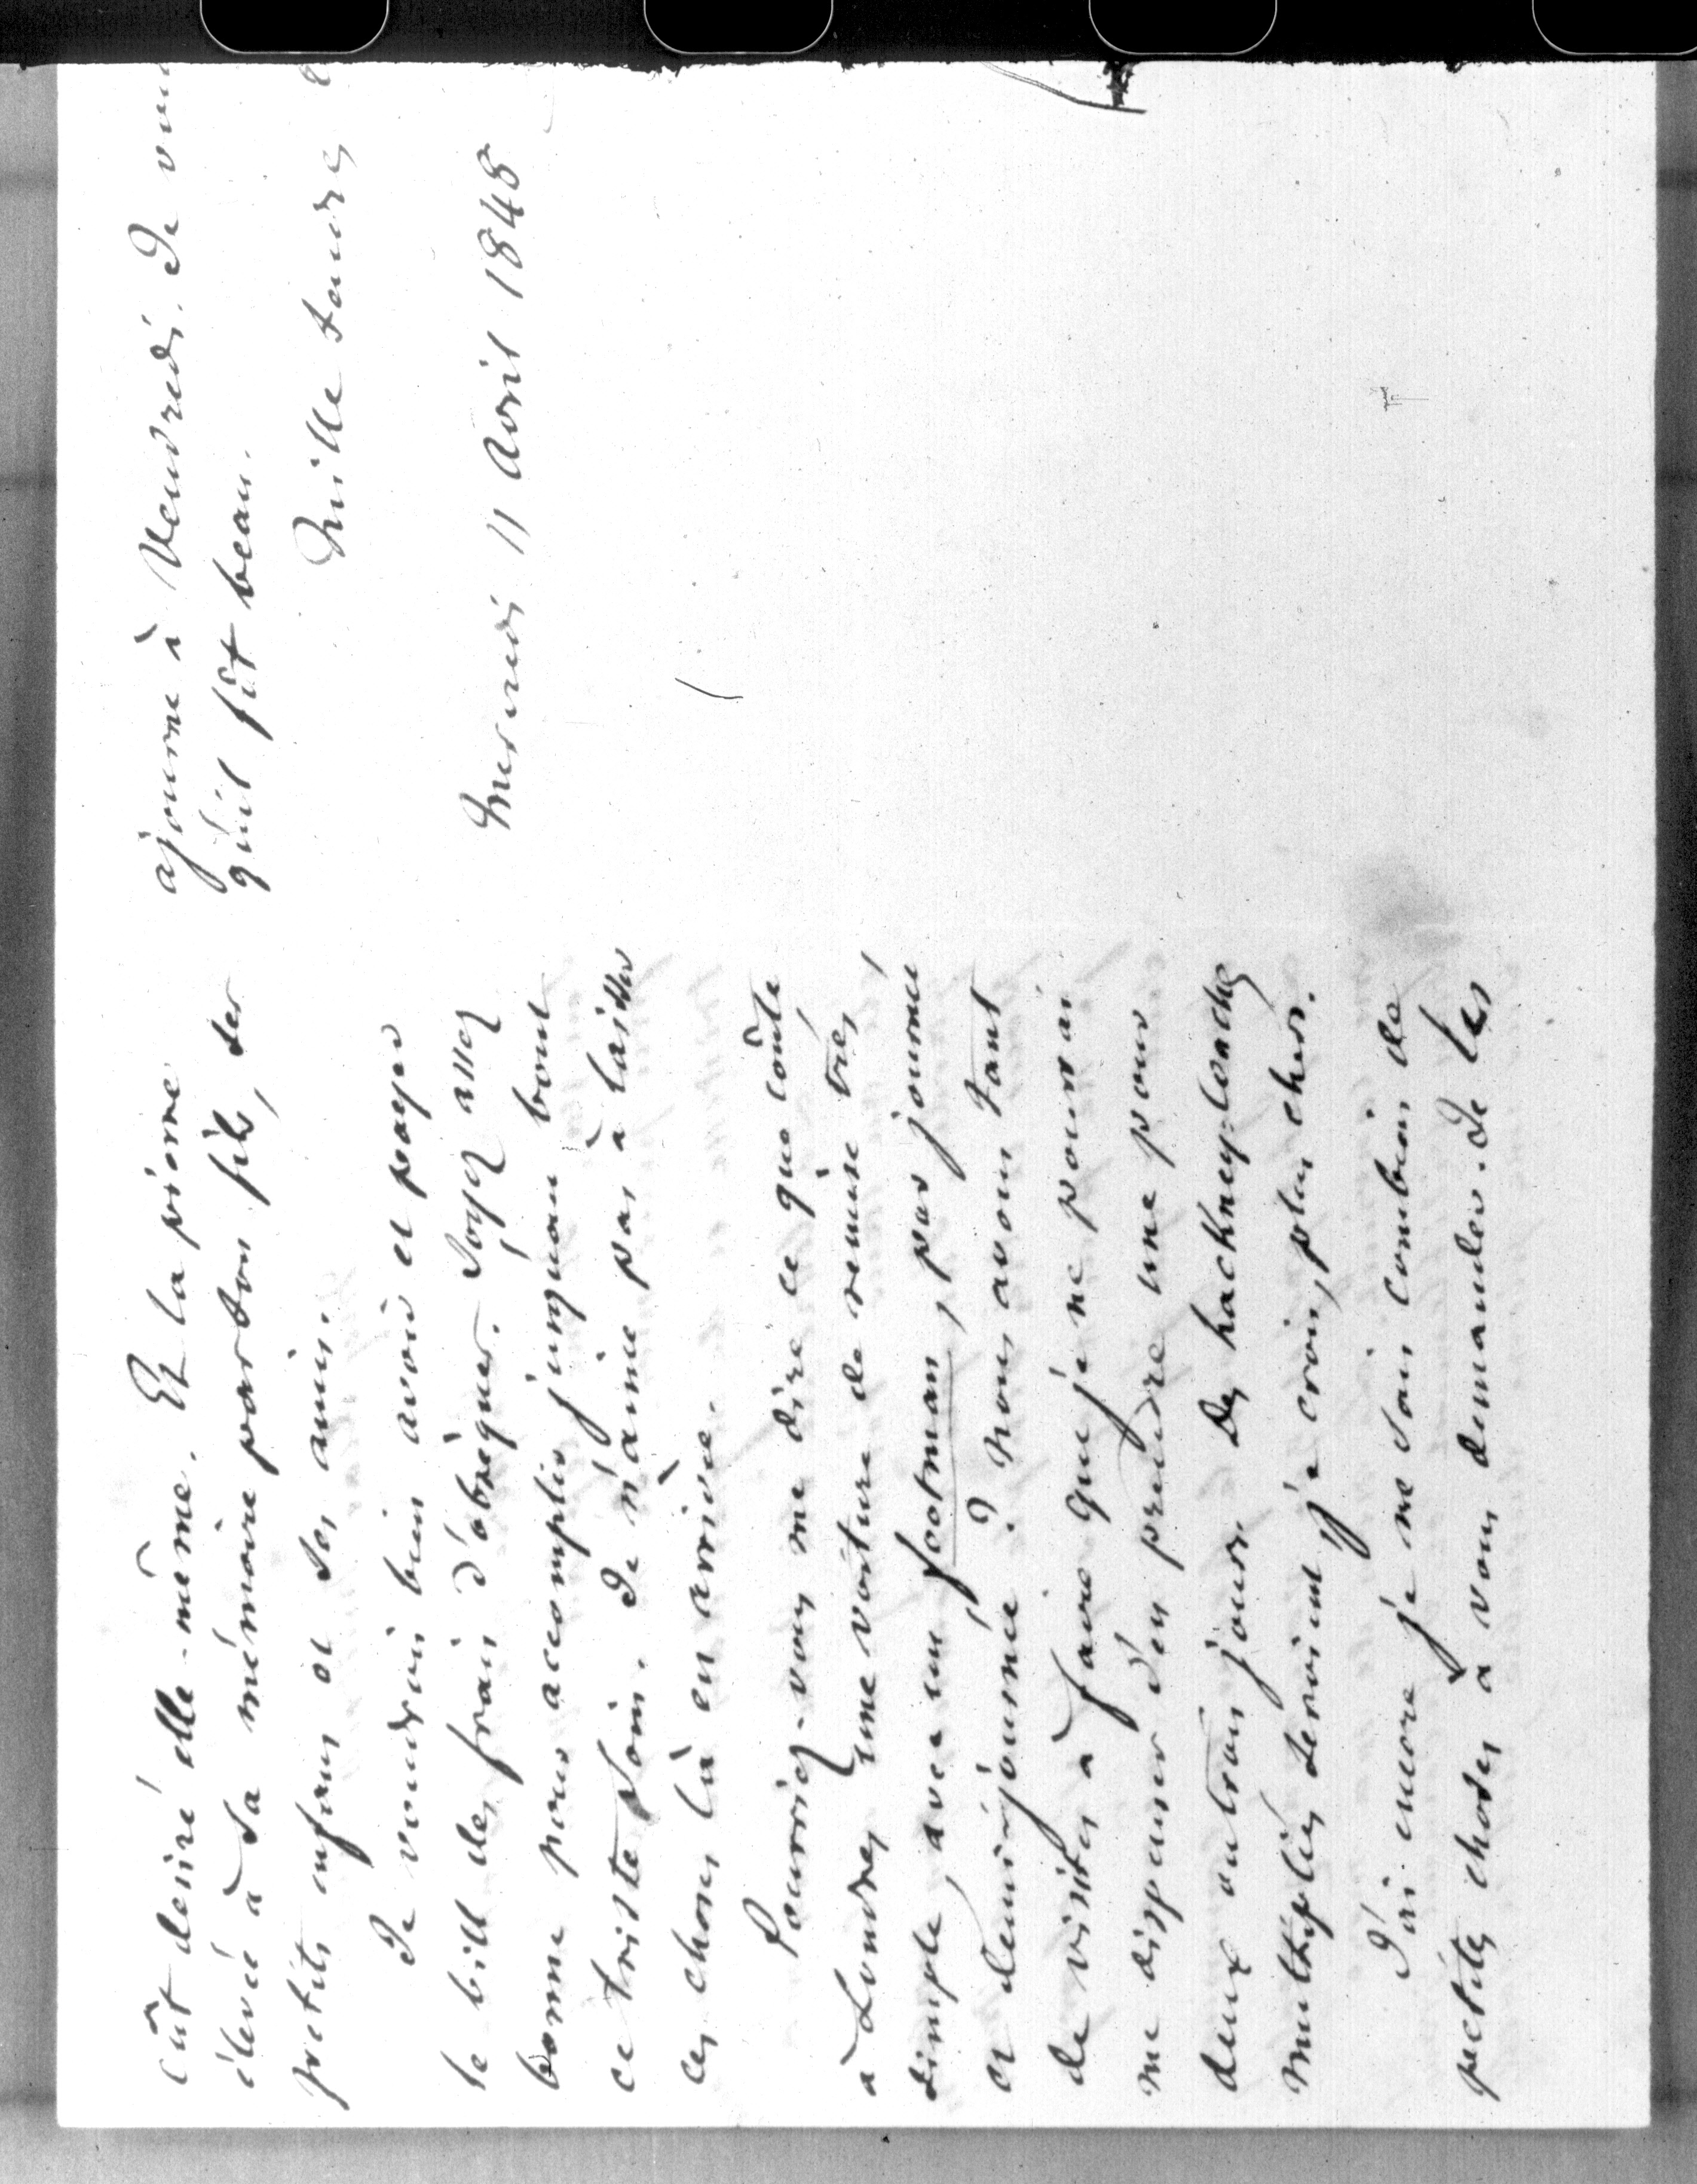 eût desiré elle-même. Et la pierre
élevée à sa mémoire par ton fils, ses
petits enfans et ses amis.
Je voudrois bien avoir et payer
le bill des frais d'obsèques. Soyez assez
bonne pour accomplir jusqu'au bout
ce triste soin. Je n'aime pas à laisser
ces choses là en arrière.
Pourriez-vous me dire ce que coûte
à Londres une voiture de remise très
simple, avec un footman, par journée
et demi-journée ? Nous avons tant
de visites à faire que je ne pourrai
me dispenser d'en prendre une pour
deux ou trois jours. Des hackney-coaches
multipliés seroient, je crois, plus chers.
J'ai encore je ne sais combien de
petites choses à vous demander. Je les
ajourne à Vendredi. Je
qu'il fît beau.
Mille tendres
Mercredi 11 Avril 1848